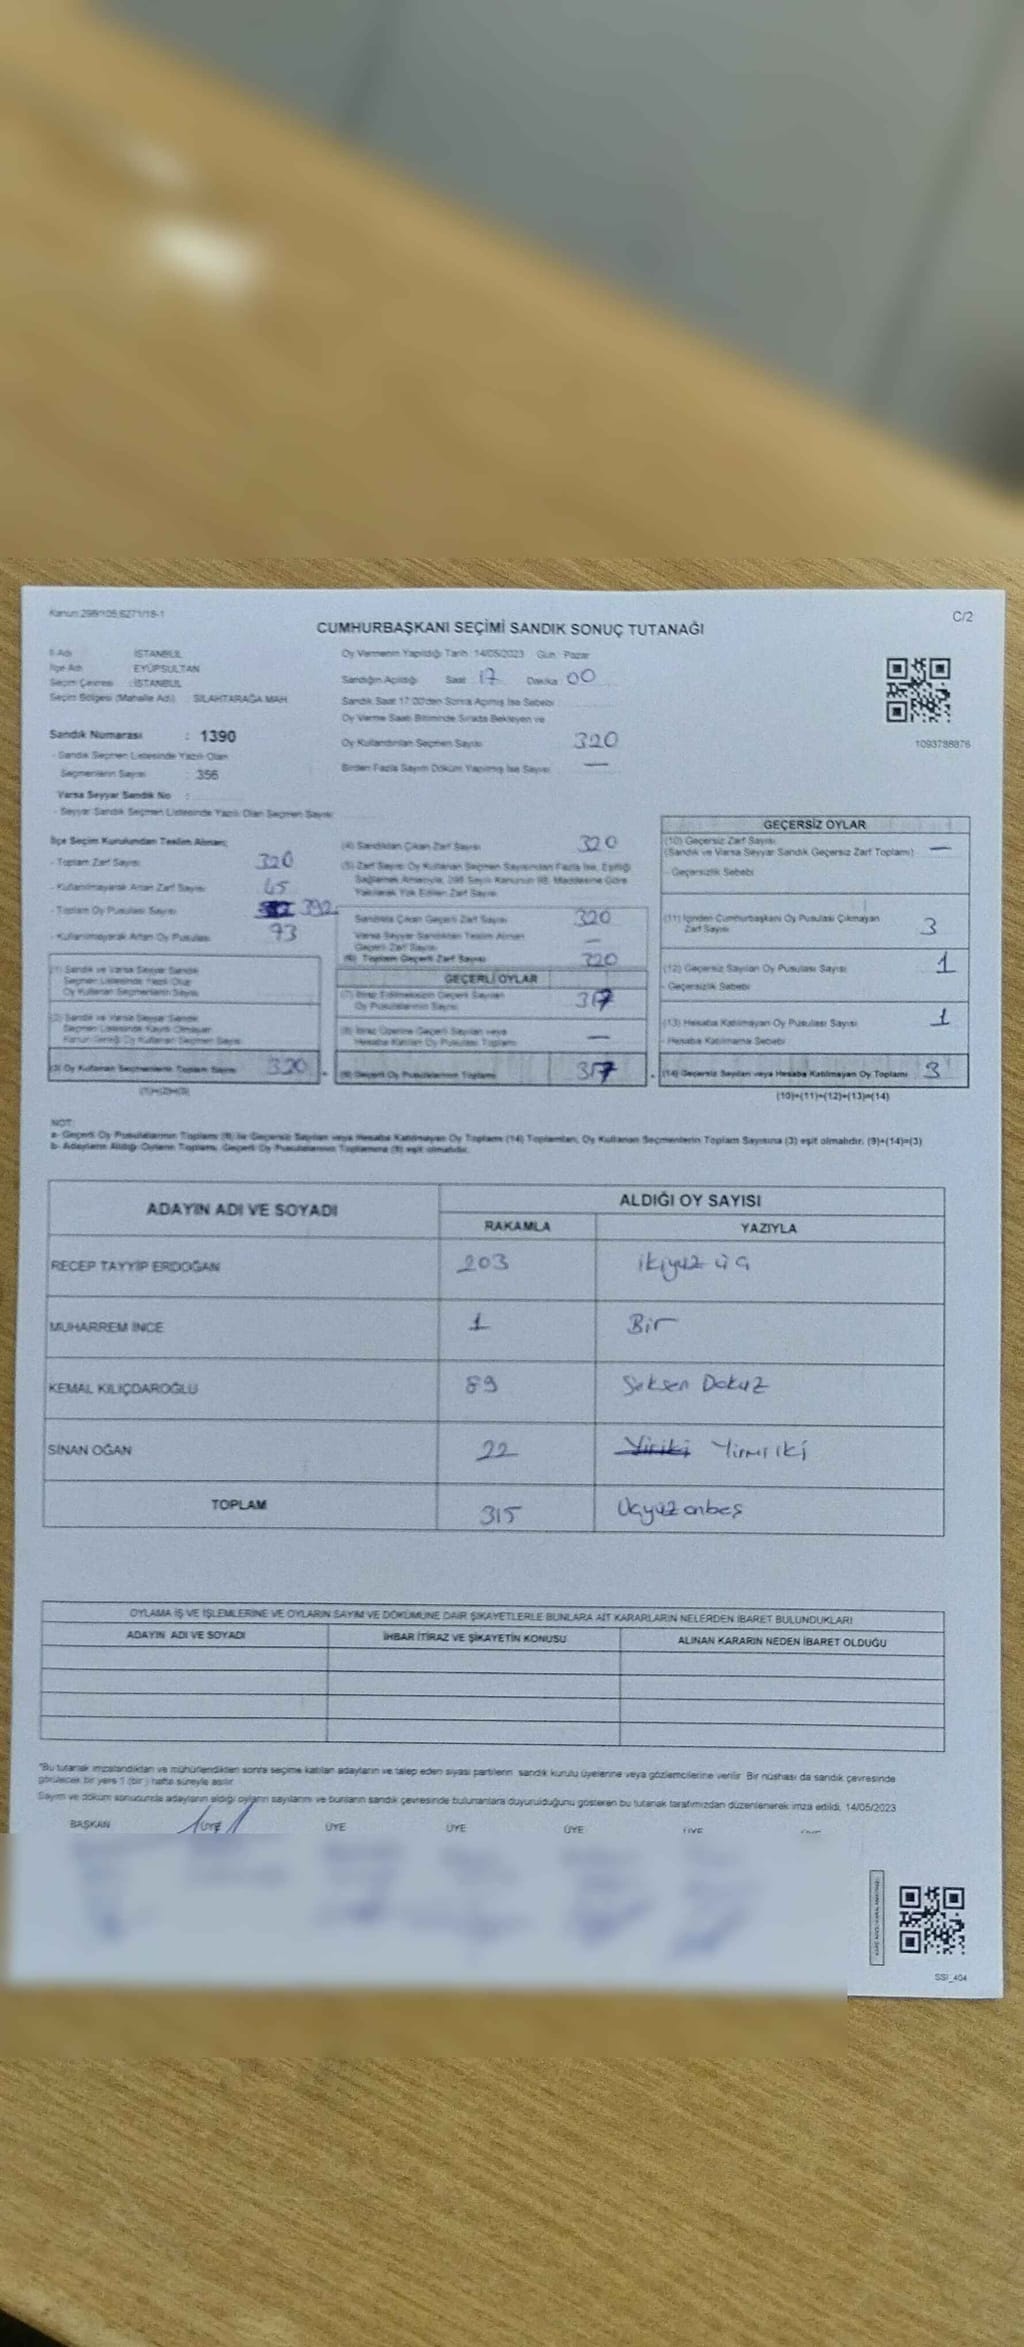 Kanun:298/105,6271/18-1
C/2
CUMHURBAŞKANI SEÇİMİ SANDIK SONUÇ TUTANAĞI
İl Adı : İSTANBUL
İlçe Adı : EYÜPSULTAN
Seçim Çevresi : İSTANBUL
Seçim Bölgesi (Mahalle Adı) : SİLAHTARAĞA MAH.
Sandık Numarası : 1390
- Sandık Seçmen Listesinde Yazılı Olan
Seçmenlerin Sayısı : 356
Varsa Seyyar Sandık No :
- Seyyar Sandık Seçmen Listesinde Yazılı Olan Seçmen Sayısı
Oy Vermenin Yapıldığı Tarih :14/05/2023 Gün : Pazar
Sandığın Açıldığı Saat 17 Dakika 00
Sandık Saat 17:00'den Sonra Açılmış İse Sebebi
Oy Verme Saati Bitiminde Sırada Bekleyen ve
Oy Kullandırılan Seçmen Sayısı 320
Birden Fazla Sayım Döküm Yapılmış İse Sayısı —
1093788876
İlçe Seçim Kurulundan Teslim Alınan;
- Toplam Zarf Sayısı 320
- Kullanılmayarak Artan Zarf Sayısı 45
- Toplam Oy Pusulası Sayısı 392
- Kullanılmayarak Artan Oy Pusulası 73
(1) Sandık ve Varsa Seyyar Sandık
Seçmen Listesinde Yazılı Olup
Oy Kullanan Seçmenlerin Sayısı
(2) Sandık ve Varsa Seyyar Sandık
Seçmen Listesinde Kayıtlı Olmayan
Kanun Gereği Oy Kullanan Seçmen Sayısı
(3) Oy Kullanan Seçmenlerin Toplam Sayısı 320
(1)+(2)=(3)
(4) Sandıktan Çıkan Zarf Sayısı 320
(5) Zarf Sayısı Oy Kullanan Seçmen Sayısından Fazla İse, Eşitliği
Sağlamak Amacıyla, 298 Sayılı Kanunun 98. Maddesine Göre
Yakılarak Yok Edilen Zarf Sayısı
Sandıkta Çıkan Geçerli Zarf Sayısı 320
Varsa Seyyar Sandıktan Teslim Alınan
Geçerli Zarf Sayısı —
(6) Toplam Geçerli Zarf Sayısı 320
GEÇERLİ OYLAR
(7) İtiraz Edilmeksizin Geçerli Sayılan
Oy Pusulalarının Sayısı 317
(8) İtiraz Üzerine Geçerli Sayılan veya
Hesaba Katılan Oy Pusulası Toplamı —
(9) Geçerli Oy Pusulalarının Toplamı 317
GEÇERSİZ OYLAR
(10) Geçersiz Zarf Sayısı —
(Sandık ve Varsa Seyyar Sandık Geçersiz Zarf Toplamı)
- Geçersizlik Sebebi
(11) İçinden Cumhurbaşkanı Oy Pusulası Çıkmayan
Zarf Sayısı 3
(12) Geçersiz Sayılan Oy Pusulası Sayısı 1
- Geçersizlik Sebebi
(13) Hesaba Katılmayan Oy Pusulası Sayısı 1
- Hesaba Katılmama Sebebi
(14) Geçersiz Sayılan veya Hesaba Katılmayan Oy Toplamı 3
(10)+(11)+(12)+(13)=(14)
NOT:
a- Geçerli Oy Pusulalarının Toplamı (9) ile Geçersiz Sayılan veya Hesaba Katılmayan Oy Toplamı (14) Toplamları, Oy Kullanan Seçmenlerin Toplam Sayısına (3) eşit olmalıdır. (9)+(14)=(3)
b- Adayların Aldığı Oyların Toplamı, Geçerli Oy Pusulalarının Toplamına (9) eşit olmalıdır.
ADAYIN ADI VE SOYADI
ALDIĞI OY SAYISI
RAKAMLA YAZIYLA
RECEP TAYYİP ERDOĞAN 203 ikiyüz üç
MUHARREM İNCE 1 Bir
KEMAL KILIÇDAROĞLU 89 Seksen Dokuz
SİNAN OĞAN 22 Yirmi iki
TOPLAM 315 Üçyüzonbeş
OYLAMA İŞ VE İŞLEMLERİNE VE OYLARIN SAYIM VE DÖKÜMÜNE DAİR ŞİKAYETLERLE BUNLARA AİT KARARLARIN NELERDEN İBARET BULUNDUKLARI
ADAYIN ADI VE SOYADI İHBAR İTİRAZ VE ŞİKAYETİN KONUSU ALINAN KARARIN NEDEN İBARET OLDUĞU
"Bu tutanak imzalandıktan ve mühürlendikten sonra seçime katılan adayların ve talep eden siyasi partilerin sandık kurulu üyelerine veya gözlemcilerine verilir. Bir nüshası da sandık çevresinde
görülecek bir yere 1 (bir) hafta süreyle asılır.
Sayım ve döküm sonucunda adayların aldığı oyların sayılarını ve bunların sandık çevresinde bulunanlara duyurulduğunu gösteren bu tutanak tarafımızdan düzenlenerek imza edildi. 14/05/2023
BAŞKAN ÜYE ÜYE ÜYE ÜYE ÜYE
SSI_404